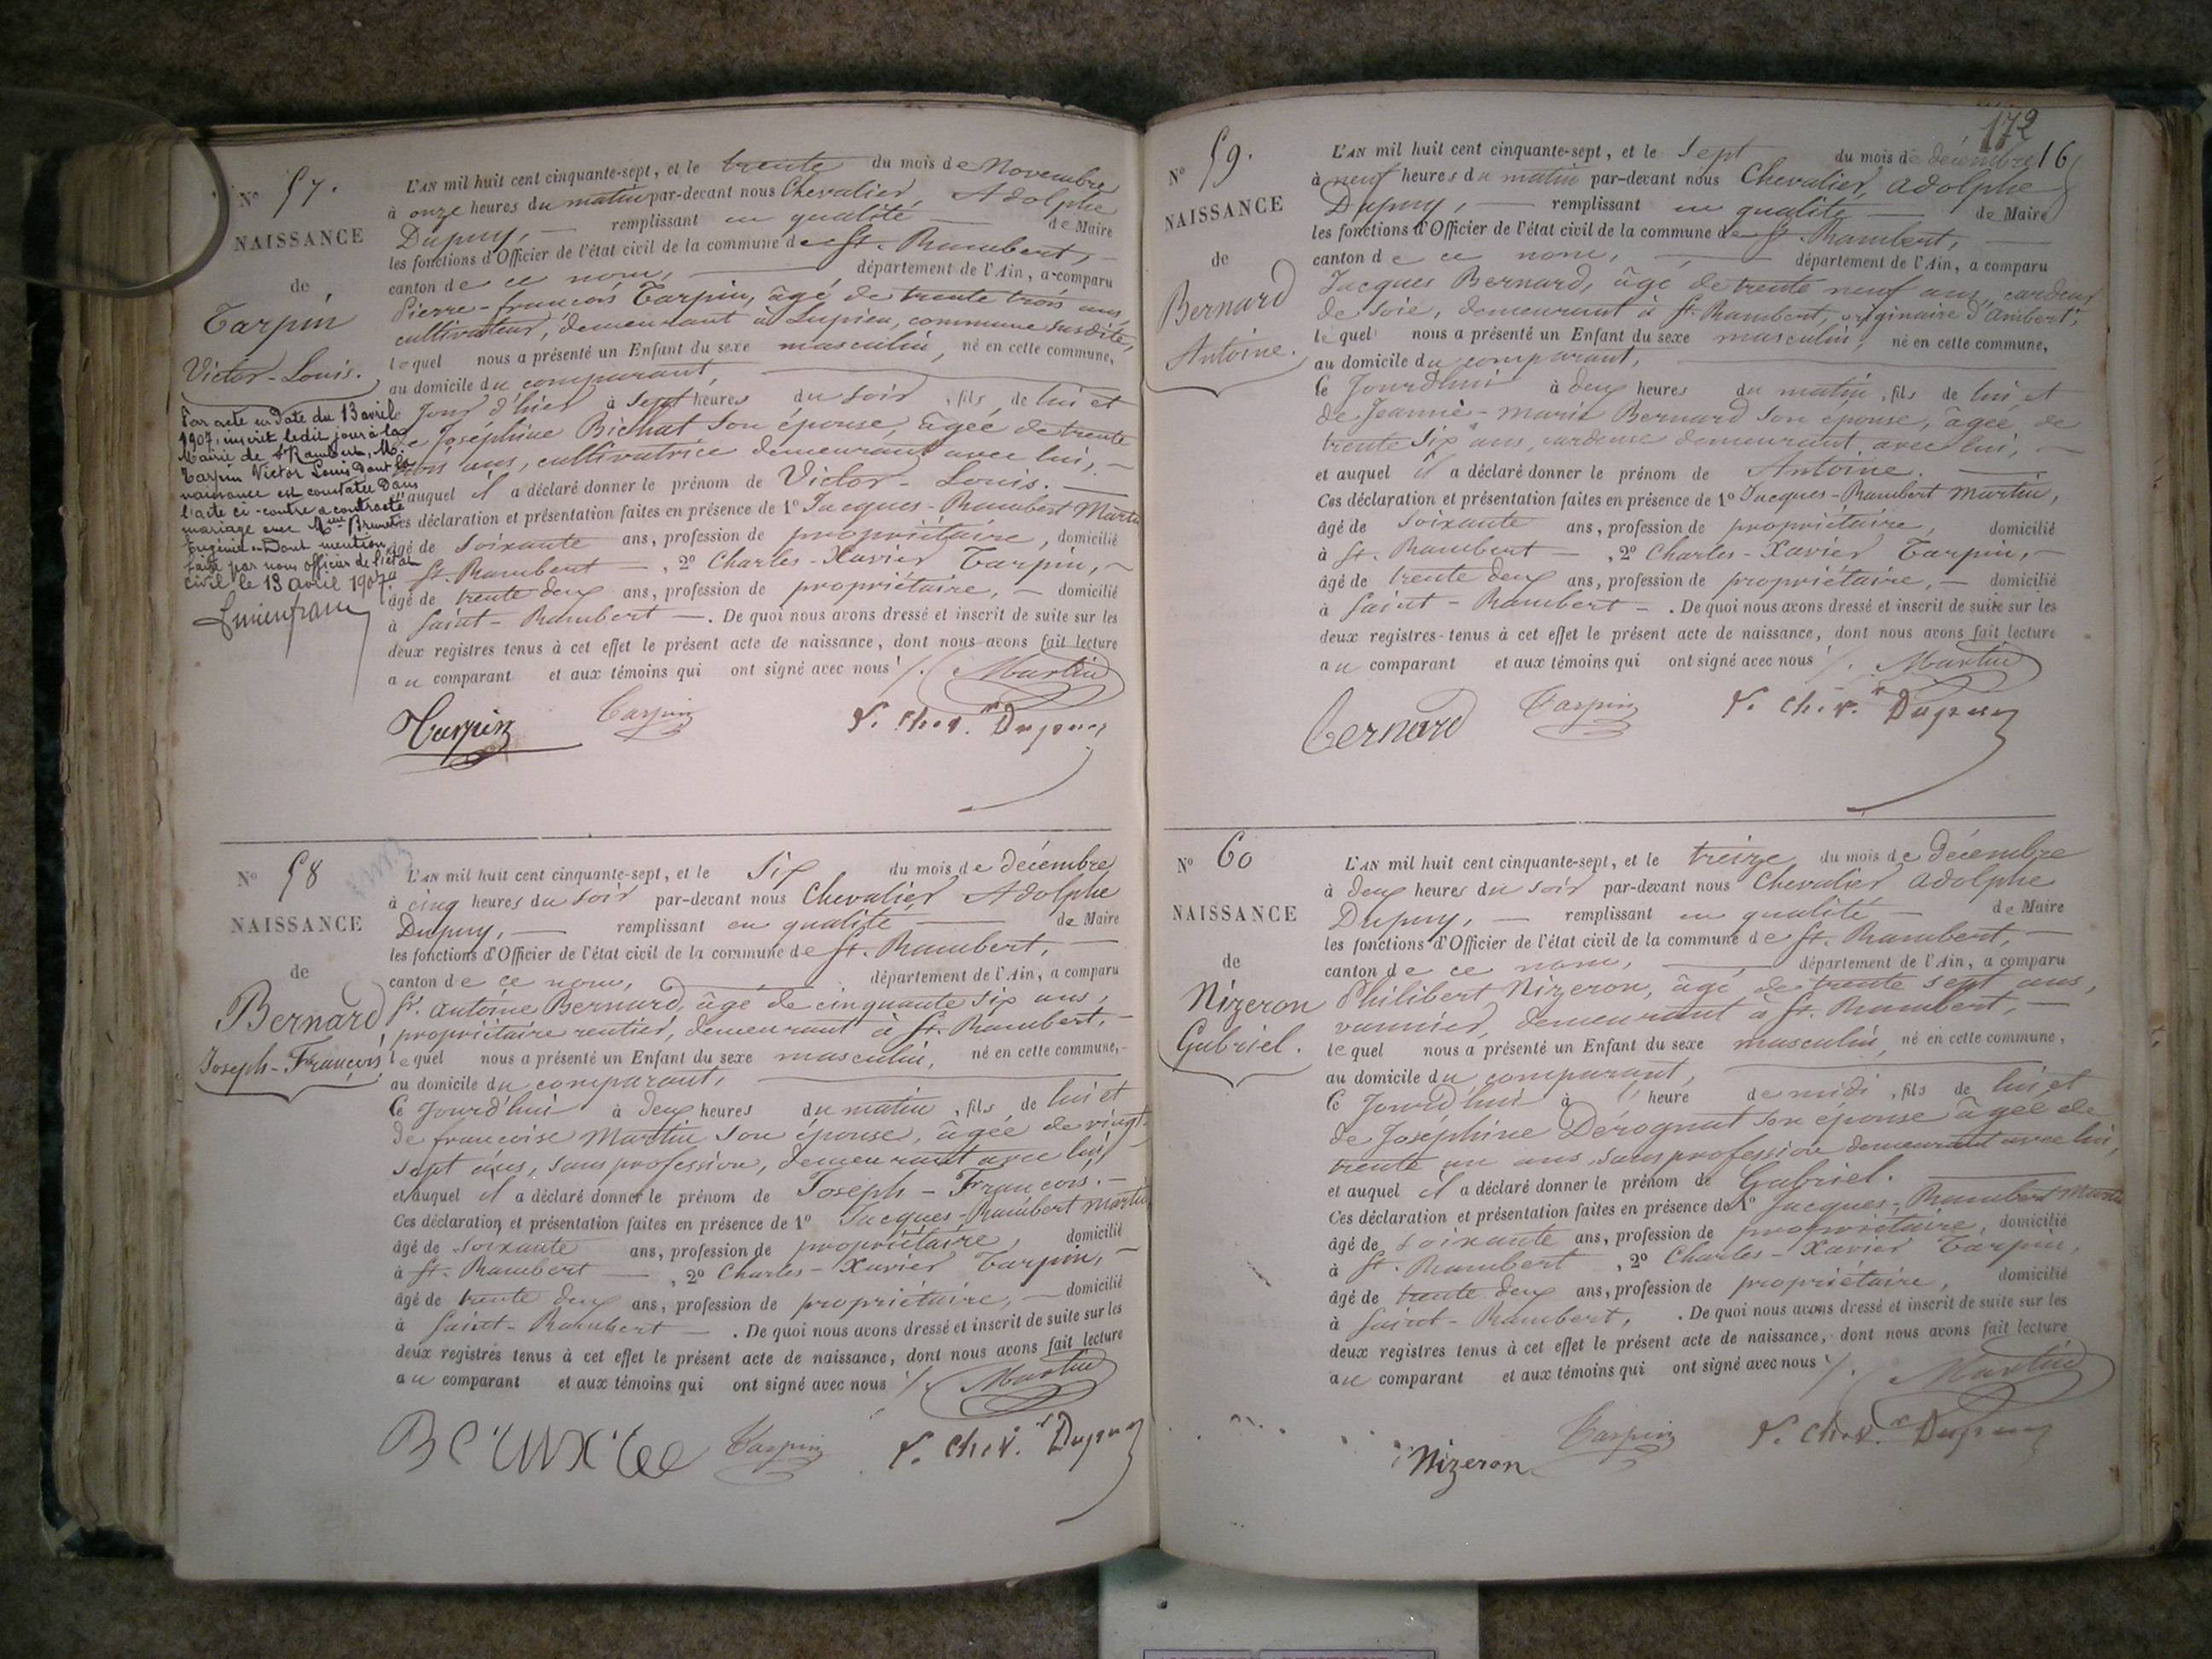 N° 57.
NAISSANCE
de
Tarpin
Victor-Louis.
Par acte en date du 13 avril
1907, inscrit ledit jour à la
Mairie de St Rambert, M.
Tarpin Victor Louis dont la
naissance est constatée dans
l'acte ci-contre a contracté
mariage avec Mme Brunet
Eugénie. Dont mention
faite par nous officier de l'état
civil le 13 avril 1907.
L'AN mil huit cent cinquante-sept, et le trente du mois de Novembre
à onze heures du matin par-devant nous Chevalier Adolphe
Dupuy, — remplissant en qualité — de Maire
les fonctions d'Officier de l'état civil de la commune de St. Rambert, —
canton de ce nom, — département de l'Ain, a comparu
Pierre-françois Tarpin, âgé de trente trois ans,
cultivateur, demeurant à Lupieu, commune susdite,
lequel nous a présenté un Enfant du sexe masculin, né en cette commune,
au domicile du comparant, —
Jour d'hier à Sept heures du soir, fils de lui et
de Joséphine Bichat son épouse, âgée de trente
trois ans, cultivatrice demeurant avec lui, —
auquel il a déclaré donner le prénom de Victor-Louis. —
Ces déclaration et présentation faites en présence de 1° Jacques-Rambert Martin
âgé de soixante ans, profession de propriétaire, domicilié
St. Rambert —, 2° Charles-Xavier Tarpin, —
âgé de trente deux ans, profession de propriétaire, — domicilié
à Saint-Rambert —. De quoi nous avons dressé et inscrit de suite sur les
deux registres tenus à cet effet le présent acte de naissance, dont nous avons fait lecture
au comparant et aux témoins qui ont signé avec nous ./. Martin
Tarpin Tarpin Dupuy
N° 58
NAISSANCE
de
Bernard
Joseph-François
L'AN mil huit cent cinquante-sept, et le Six du mois de décembre
à cinq heures du soir par-devant nous Chevalier Adolphe
Dupuy, — remplissant en qualité — de Maire
les fonctions d'Officier de l'état civil de la commune de St. Rambert, —
canton de ce nom, — département de l'Ain, a comparu
Sr. Antoine Bernard, âgé de cinquante six ans,
propriétaire rentier, demeurant à St. Rambert, —
lequel nous a présenté un Enfant du sexe masculin, né en cette commune, -
au domicile du comparant, —
Ce Jourd'hui à deux heures du matin, fils de lui et
de françoise Martin son épouse, âgée de vingt-
sept ans, sans profession, demeurant avec lui,
et auquel il a déclaré donner le prénom de Joseph-François. —
Ces déclaration et présentation faites en présence de 1° Jacques-Rambert Martin
âgé de soixante ans, profession de propriétaire, domicilié
à St. Rambert —, 2° Charles-Xavier Tarpin, —
âgé de trente deux ans, profession de propriétaire, — domicilié
à Saint-Rambert —. De quoi nous avons dressé et inscrit de suite sur les
deux registres tenus à cet effet le présent acte de naissance, dont nous avons fait lecture
au comparant et aux témoins qui ont signé avec nous ./. Martin
Tarpin Dupuy
172
16
N° 59.
NAISSANCE
de
Bernard
Antoine.
L'AN mil huit cent cinquante-sept, et le Sept du mois de décembre
à neuf heures du matin par-devant nous Chevalier, Adolphe
Dupuy, — remplissant en qualité — de Maire
les fonctions d'Officier de l'état civil de la commune de St. Rambert, —
canton de ce nom, — département de l'Ain, a comparu
Jacques Bernard, âgé de trente neuf ans, cardeur
de soie, demeurant à St. Rambert, originaire d'Ambert,
lequel nous a présenté un Enfant du sexe masculin, né en cette commune,
au domicile du comparant, —
Ce Jourd'hui à deux heures du matin, fils de lui et
de Jeanne-Marie Bernard son épouse, âgée de
trente Six ans, cardeuse demeurant avec lui, —
et auquel il a déclaré donner le prénom de Antoine. —
Ces déclaration et présentation faites en présence de 1° Jacques-Rambert Martin,
âgé de Soixante ans, profession de propriétaire, domicilié
à St. Rambert —, 2° Charles-Xavier Tarpin, —
âgé de trente deux ans, profession de propriétaire, — domicilié
à Saint-Rambert —. De quoi nous avons dressé et inscrit de suite sur les
deux registres tenus à cet effet le présent acte de naissance, dont nous avons fait lecture
au comparant et aux témoins qui ont signé avec nous ./. Martin
Bernard Tarpin Dupuy
N° 60
NAISSANCE
de
Nizeron
Gabriel.
L'AN mil huit cent cinquante-sept, et le treize du mois de décembre
à deux heures du soir par-devant nous Chevalier Adolphe
Dupuy, — remplissant en qualité — de Maire
les fonctions d'Officier de l'état civil de la commune de St. Rambert, —
canton de ce nom, — département de l'Ain, a comparu
Philibert Nizeron, âgé de trente sept ans,
vannier, demeurant à St. Rambert, —
lequel nous a présenté un Enfant du sexe masculin, né en cette commune,
au domicile du comparant, —
Ce Jourd'hui à l'heure de midi, fils de lui et
de Joséphine Dérognat son épouse âgée de
trente un ans, sans profession demeurant avec lui,
et auquel il a déclaré donner le prénom de Gabriel. —
Ces déclaration et présentation faites en présence de 1° Jacques-Rambert Martin
âgé de soixante ans, profession de propriétaire, domicilié
à St. Rambert, 2° Charles-Xavier Tarpin,
âgé de trente deux ans, profession de propriétaire, domicilié
à Saint-Rambert, . De quoi nous avons dressé et inscrit de suite sur les
deux registres tenus à cet effet le présent acte de naissance, dont nous avons fait lecture
au comparant et aux témoins qui ont signé avec nous ./. Martin
Nizeron Tarpin Dupuy